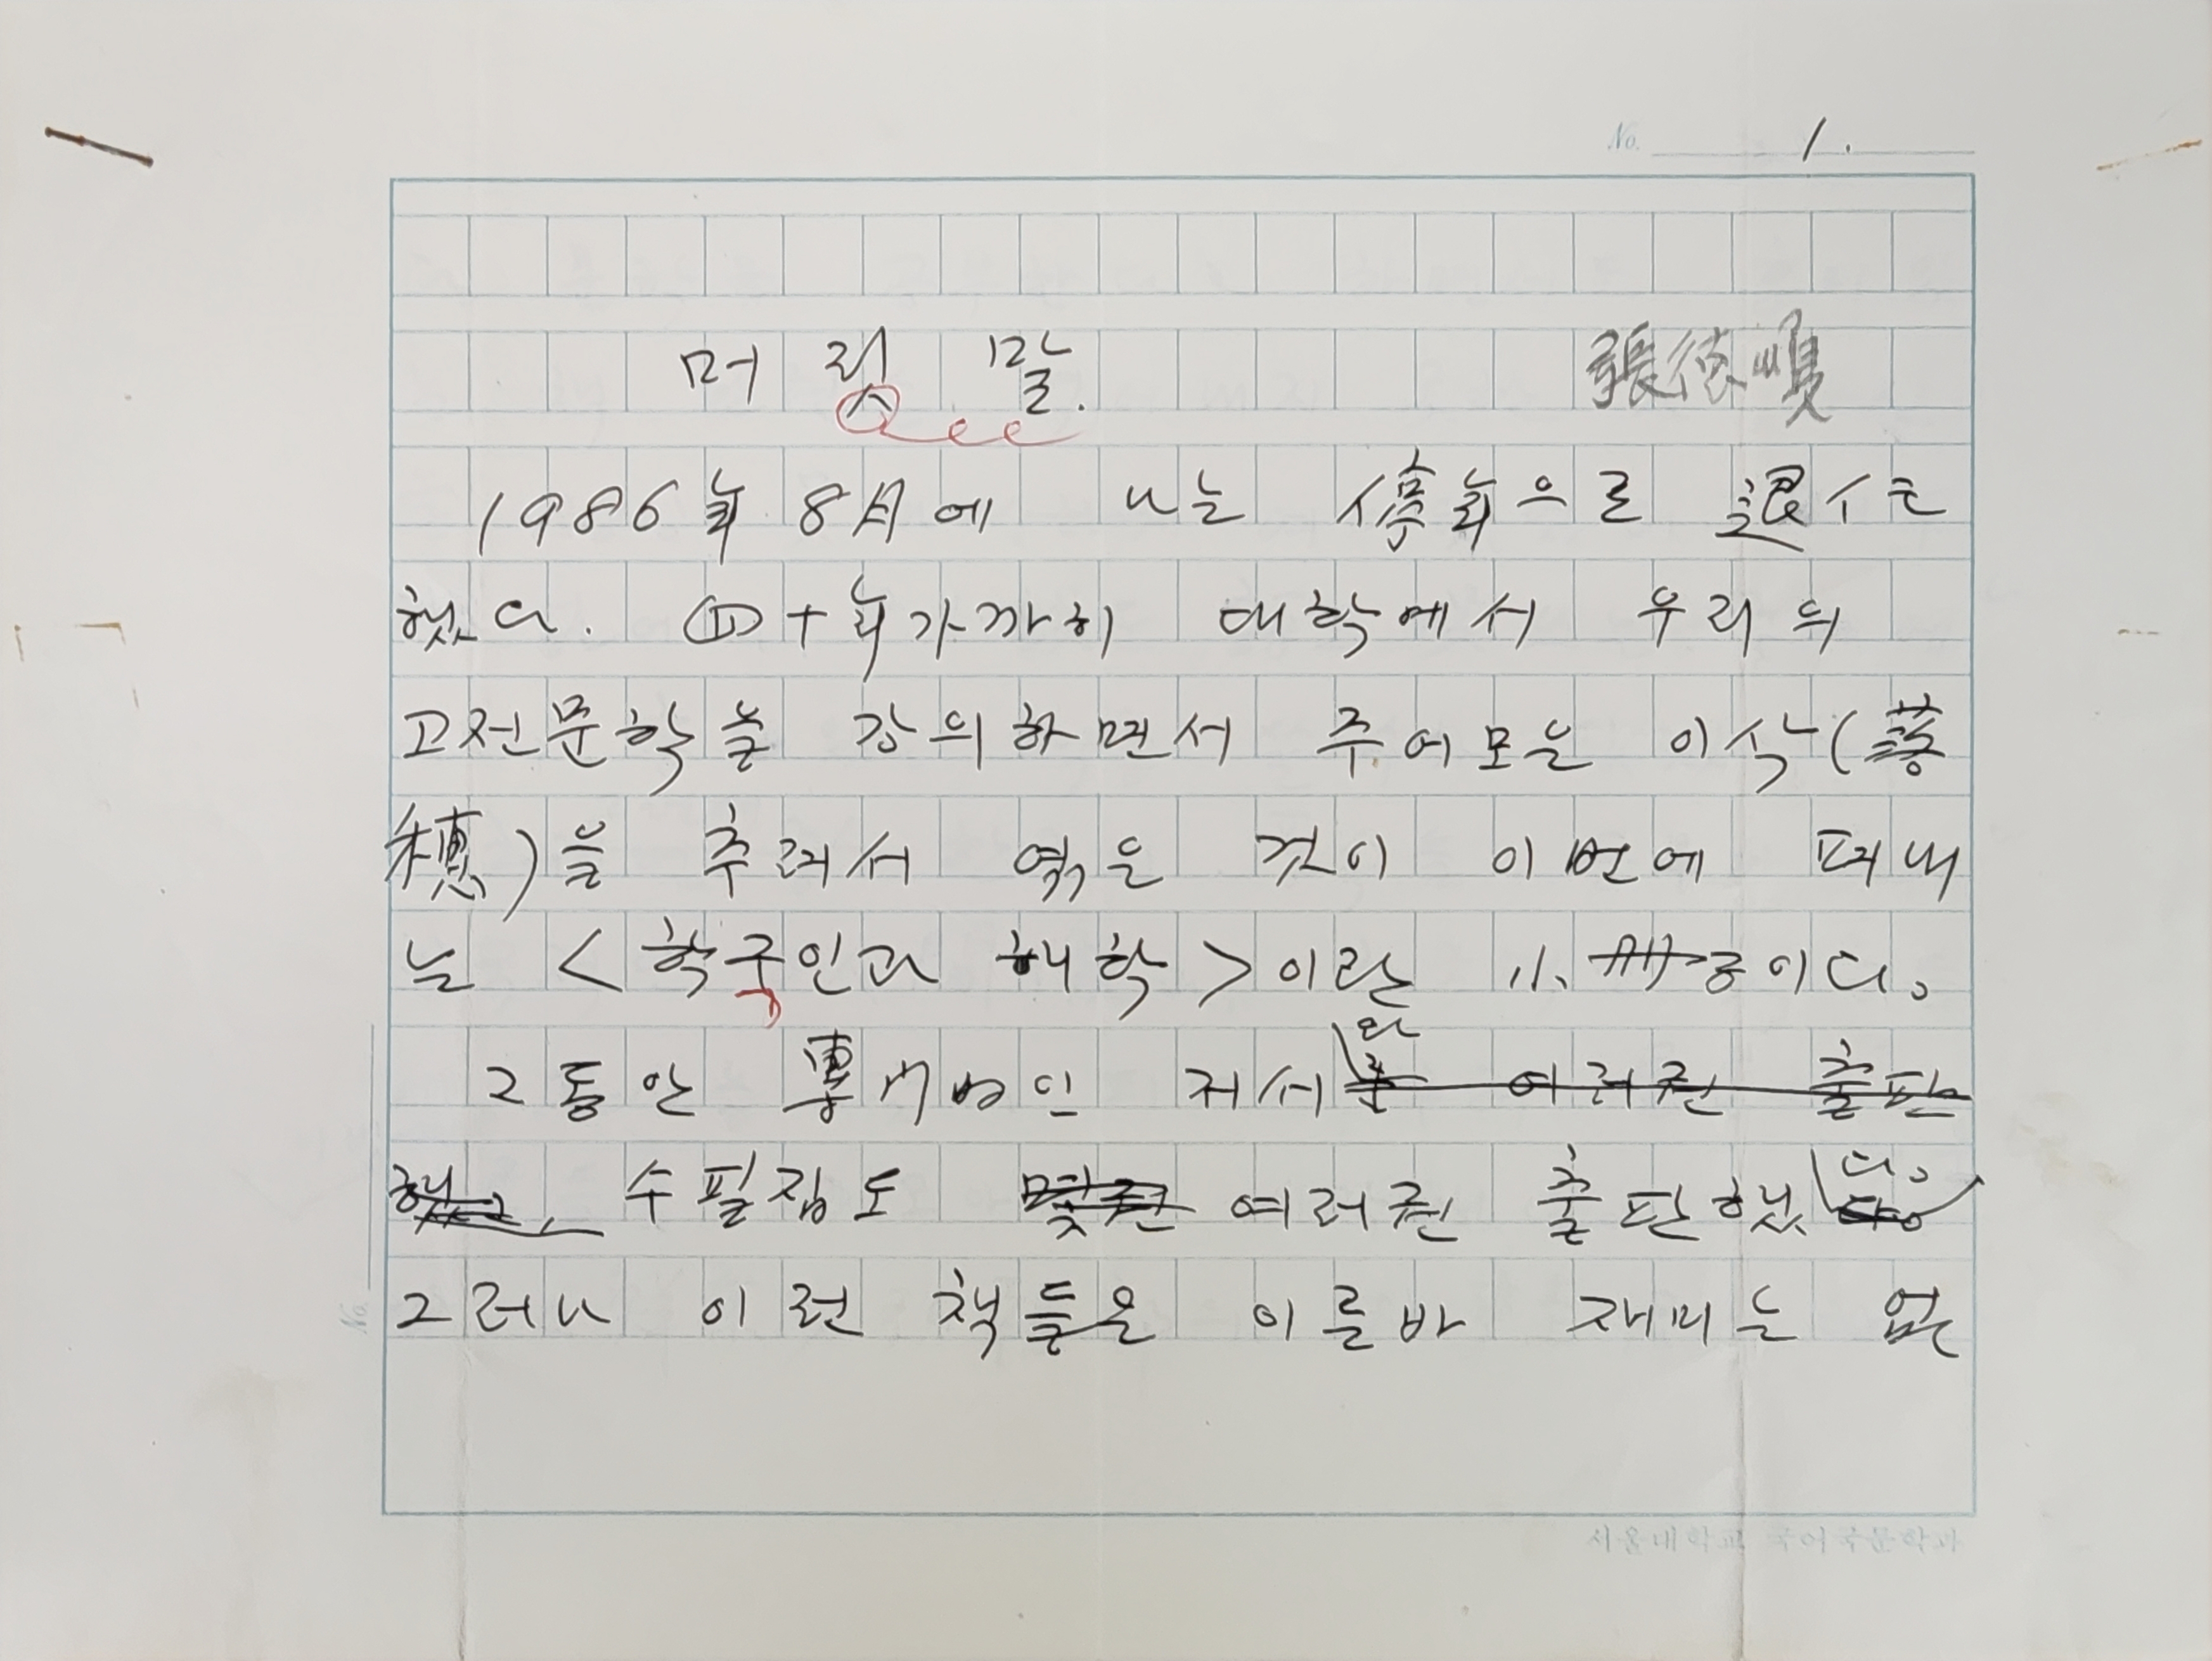 No. 1.
머릿말. 張德順
1986年 8月에 나는 停年으로 退任
했다. 四十年가까히 대학에서 우리의
고전문학을 강의하면서 주어모은 이삭(落
穗)을 추려서 엮은 것이 이번에 펴내
는 <한국인과 해학>이란 小冊子이다.
와
그동안 專門的인 저서를 여러권 출판
했고, 수필집도 몇권 여러권 출판했다。
다。
그러나 이런 책들은 이를바 재미는 없는
No.
서울대학교 국어국문학과